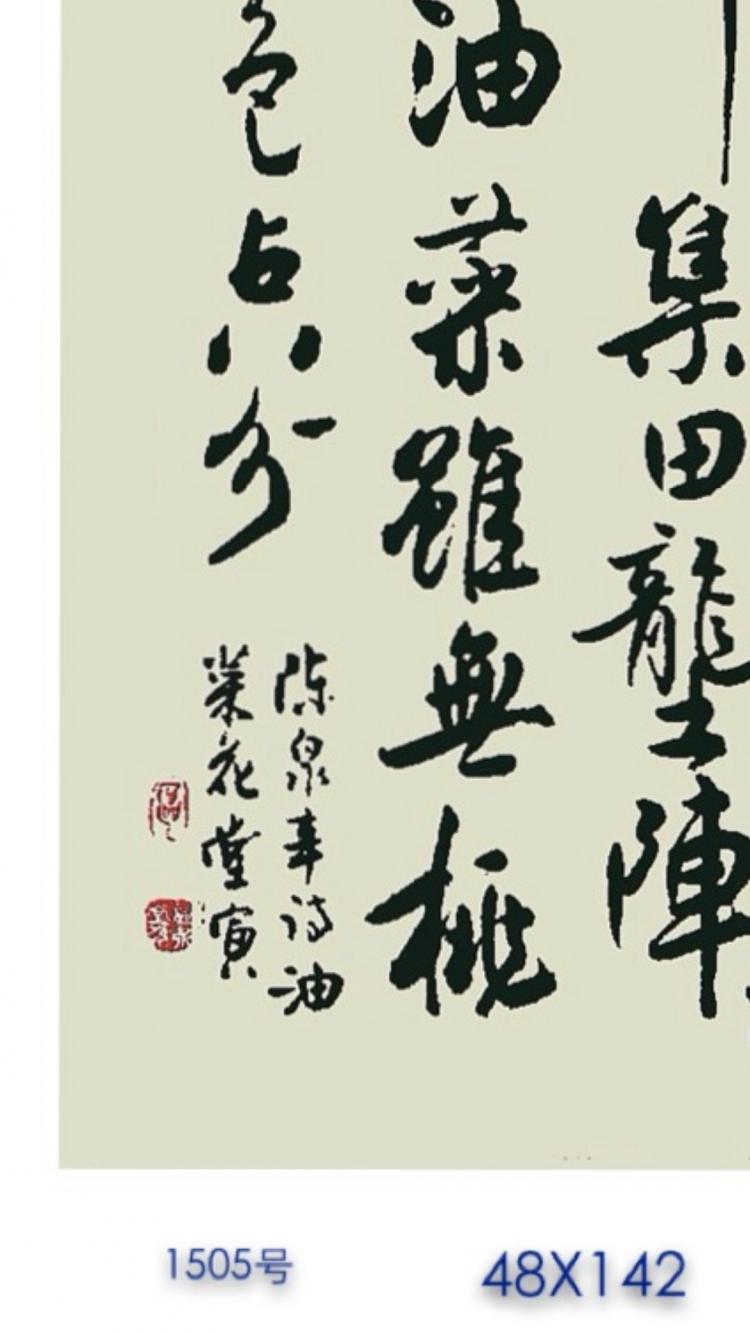 集田壟陣
油菜雖無桃
色占八分
陈泉章诗油
菜花堂寅
1505号
48X142